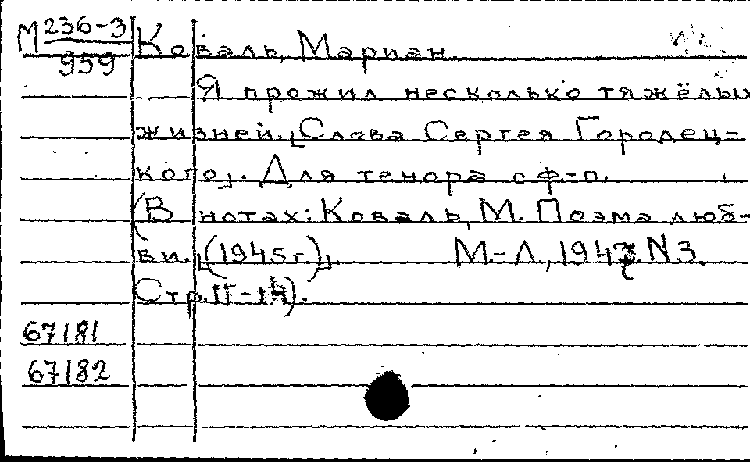 М 236-3 Коваль, Мариан.
959
Я прожил несколько тяжёлых
жизней. [Слова Сергея Городец-
кого]. Для тенора с ф-п.
(В нотах: Коваль, М. Поэма люб-
ви. [(1945 г.)]. М.-Л., 1947. N 3.
Стр. 11-14).
67181
67182